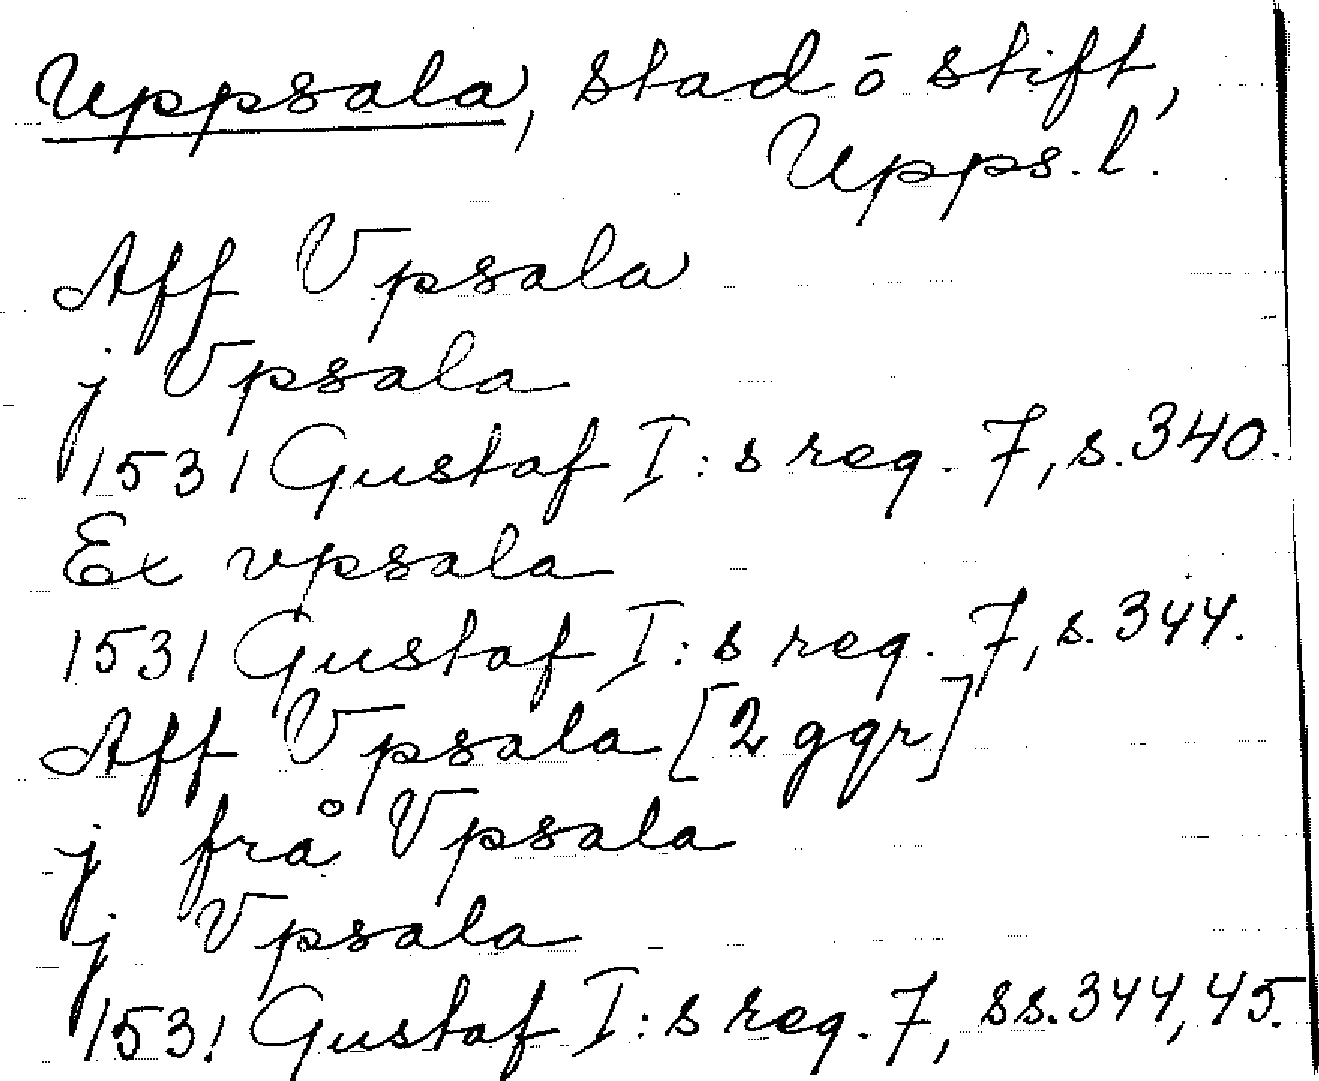 Uppsala, stad ō stift,
Upps. l.
Aff Vpsala
j Vpsala
1531 Gustaf I:s reg. 7, s. 340.
Ex vpsala
1531 Gustaf I:s reg. 7, s. 344.
Aff Vpsala [2 ggr]
j från Vpsala
j Vpsala
1531 Gustaf I:s reg. 7, ss. 344, 45.